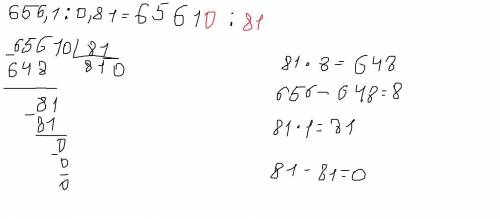 656,1:0,81=65610 : 81
-65610 81
648 810
81
-81
0
-0
0
81·8=648
656-648=8
81·1=81
81-81=0